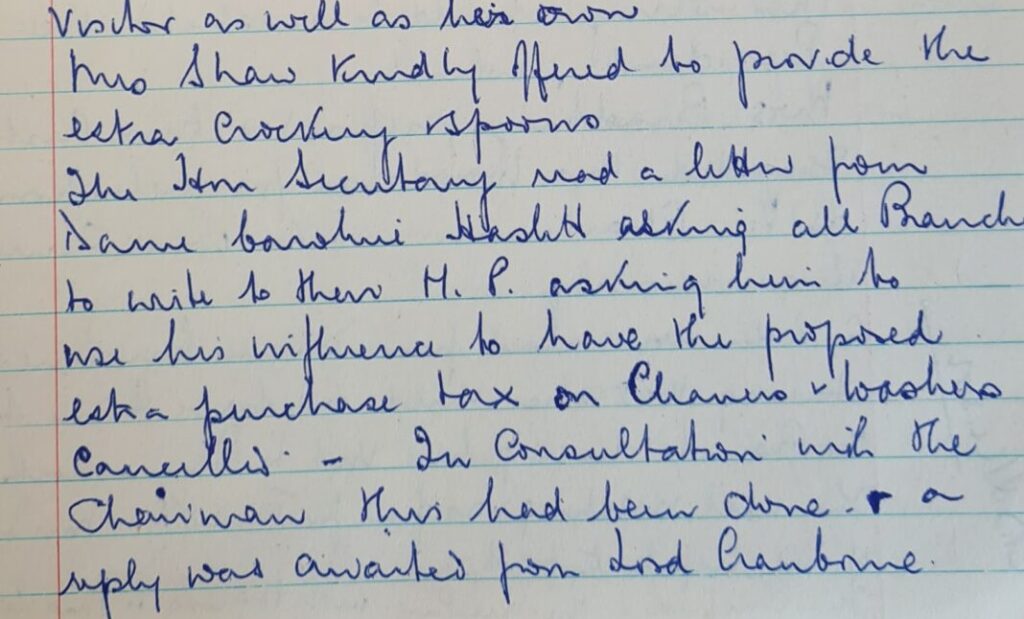 Visitor as well as her own
Mrs Shaw kindly offered to provide the
extra Crockery & spoons
The Hon Secretary read a letter from
Dame Caroline Haslett asking all Branch
to write to their M. P. asking him to
use his influence to have the proposed
extra purchase tax on Cleaners & Washers
Cancelled. - In Consultation with the
Chairman this had been done. & a
reply was awaited from Lord Cranborne.